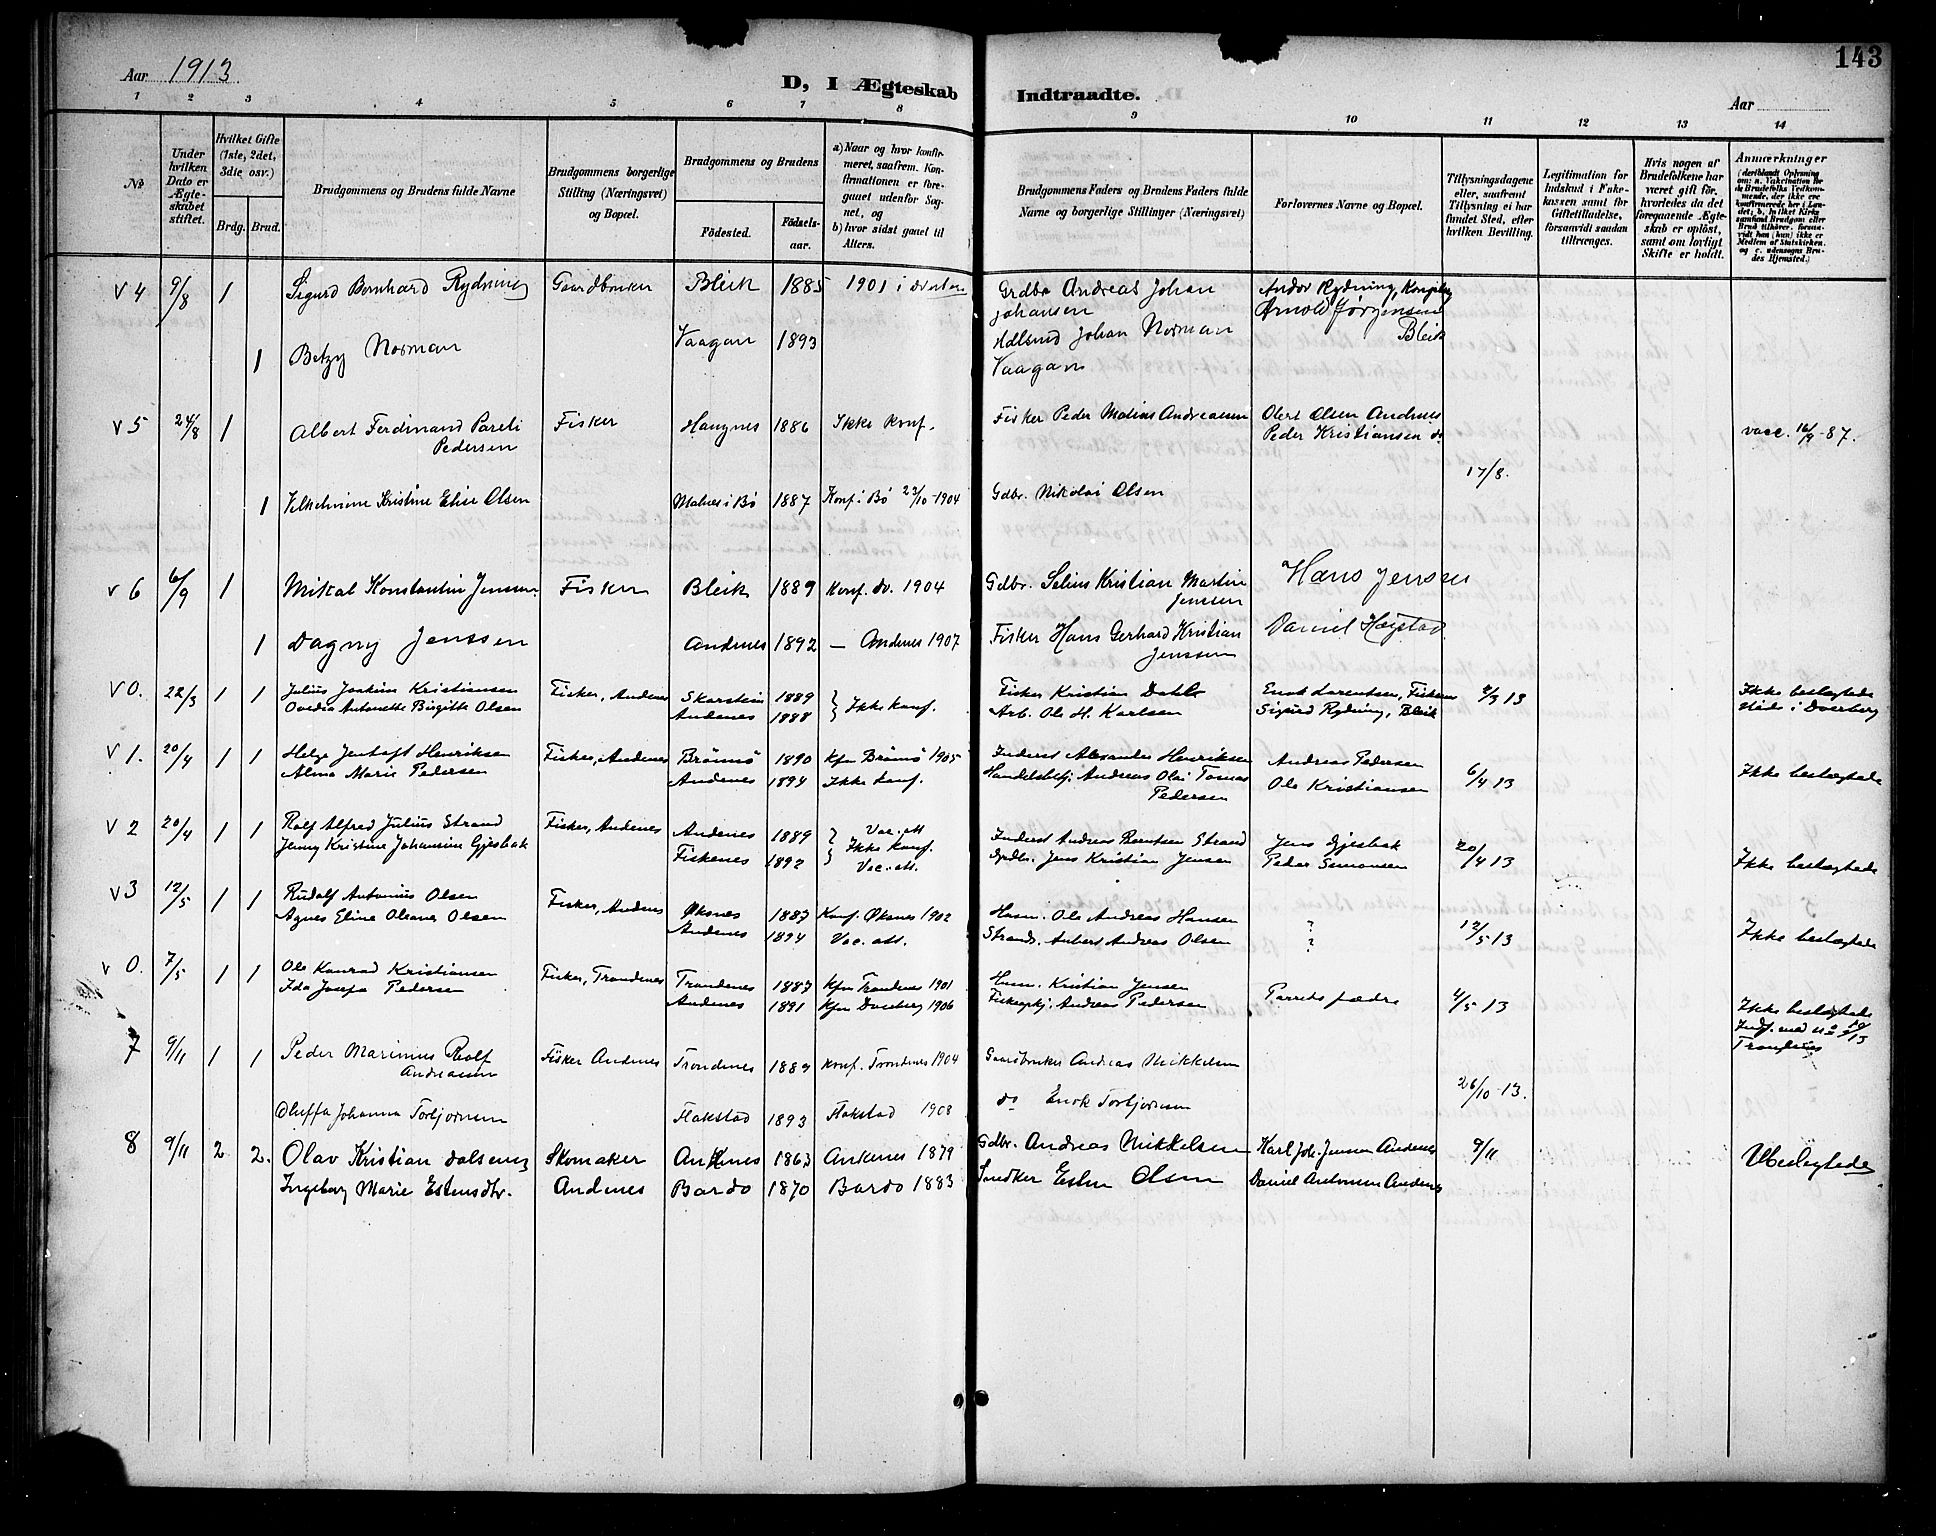 143
Aar 1913
D, I Ægteskab Indtraadte.
Aar
1 2 3 4 5 6 7 8 9 10 11 12 13 14
No
Under hvilken Dato er Ægteskabet stiftet.
Hvilket Gifte (1ste, 2det, 3die osv.)
Brdg. Brud.
Brudgommens og Brudens fulde Navne
Brudgommens borgerlige Stilling (Næringsvei) og Bopæl.
Brudgommens og Brudens
Fødested. Fødselsaar.
a) Naar og hvor konfirmeret, saafrem. Konfirmationen er foregaaet udenfor Sognet, og
b) hvor sidst gaaet til Alters.
Brudgommens Faders og Brudens Faders fulde Navne og borgerlige Stillinger (Næringsvei)
Forlovernes Navne og Bopæl.
Tillysningsdagene eller, saafremt Tillysning ei har fundet Sted, efter hvilken Bevilling.
Legitimation for Indskud i Fakekassen samt for Giftetilladelse, forsaavidt saadan tiltrænges.
Hvis nogen af Brudefolkene har været gift før, hvorledes da det foregaaende Ægteskab er opløst, samt om lovligt Skifte er holdt.
Anmærkninger
V 4 9/8 1 Sigurd Bernhard Rydning Gaardbruker Bleik 1885 1901 i Grdbr Andreas Johan Johansen Andor Rydning,
Arnold Jørgensen Bleik
1 Betzy Norman Vaagan 1893 Johan Norman
Vaagan
V 5 24/8 1 Albert Ferdinand Pareli Pedersen Fisker Haugnes 1886 Ikke konf. Fisker Peder Matias Andreassen Olert Olsen Andenes
Peder Kristiansen do vacc. 16/9-87.
17/8.
1 Vilhelmine Kristine Elise Olsen Malnes i Bø 1887 Konf. i Bø 23/10-1904 Gdbr. Nikolai Olsen
V 6 6/9 1 Mikal Konstantin Jenssen Fisker Bleik 1889 Konf. Dv. 1904 Gdbr. Selius Kristian Martin Jenssen Hans Jenssen
1 Dagny Jenssen Andenes 1892 — Andenes 1907 Fisker Hans Gerhard Kristian Jenssen Daniel Høgstad
V 0. 22/3 1 1 Julius Joakim Kristiansen Fisker, Andenes Skarstein 1889 Ikke konf. Fisker Kristian Dahl Enok Lorentsen, 2/3 13 Ikke beslegtede
Ovedia Antonette Birgitte Olsen Andenes 1888 Arb. Ole H. Karlsen Sigurd Rydning, Bleik i Dverberg
V 1. 20/4 1 1 Helge Jentoft Henriksen Fisker, Andenes Brønnø 1890 Kfm Brønnø 1905 Inderst Alexander Henriksen Andreas Pedersen 6/4 13 Ikke beslegtede
Alma Marie Pedersen Andenes 1894 Ikke konf. Handelsbetj. Andreas Olai Tomas Pedersen Ole Kristiansen
V 2 20/4 1 1 Rolf Alfred Julius Strand Fisker, Andenes Andenes 1889 Vac. att Ikke konf. Inderst Andreas Berntsen Strand Jens Gjesbak 20/4 13 Ikke beslegtede
Jenny Kristine Johansine Gjesbak Fiskenes 1892 Vac. att. Gdbr. Jens Kristian Jensen Peder Simonsen
V 3 12/5 1 1 Rudolf Antonius Olsen Fisker, Andenes Øksnes 1887 Konf. Øksnes 1902 Husm. Ole Andreas Hansen ? 12/5 13 Ikke beslegtede
Agnes Eline Oleane Olsen Andenes 1894 Vac. att. Strands. Anbert Andreas Olsen ?
V 0. 7/5 1 1 Ole Konrad Kristiansen Fisker, Trondenes Trondenes 1887 Kfm Trondenes 1901 Husm. Kristian Jensen 4/5 13 Ikke beslegtede
Ida Josefa Pedersen Andenes 1891 Kfm Dverberg 1906 Andreas Pedersen
7 9/11 1 1 Peder Marinius Rolf Andreassen Fisker Andenes Trondenes 1889 Konf. Trondenes 1904 Gaardbruker Andreas Mikkelsen
26/10-13.
Oluffa Johanna Torbjørnsen Flakstad 1893 Flakstad 1908 do Enok Torbjørnsen
8 9/11 2 2. Olav Kristian Skomaker Ankenes 1863 Ankenes 1879 Gdbr. Andreas Mikkelsen Karl Joh. Jensen Andenes 9/11 Ubeslegtede
Ingeborg Marie Estensdtr. Andenes Bardo 1870 Bardo 1883 Snedker Esten Olsen Daniel Antonsen Andenes